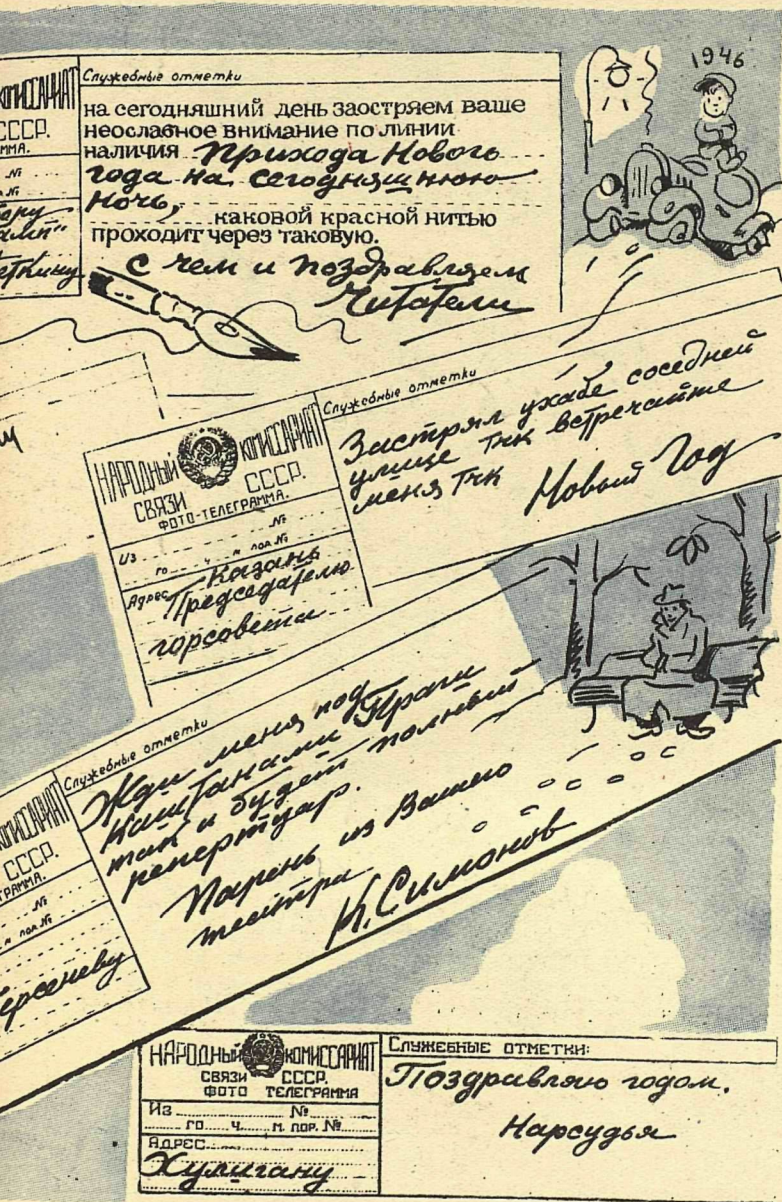 Служебные отметки
КОМИССАРИАТ
СССР.
на сегодняшний день заостряем ваше
неослабное внимание по линии
наличия Прихода Нового
года на сегодняшнюю
ночь,
каковой красной нитью
проходит через таковую.
с чем и поздравляем
Читатели
1946
№
№
НАРОДНЫЙ КОМИССАРИАТ
СВЯЗИ СССР.
ФОТО-ТЕЛЕГРАММА.
Из №
го ч м пор. №
Адрес Казань
Председателю
горсовета
Служебные отметки
Застрял ухабе соседней
улице тчк встречайте
меня тчк
Новый Год
КОМИССАРИАТ
СССР.
№
м пор. №
Служебные отметки
Жди меня под
каштанами Праги
так и будет полный
репертуар.
Парень из Вашего
театра
К. Симонов
НАРОДНЫЙ КОМИССАРИАТ
СВЯЗИ СССР.
ФОТО ТЕЛЕГРАММА
Из № 
го ч. м. пор. №
Адрес
Хулигану
Служебные отметки:
Поздравляю годом.
Нарсудья